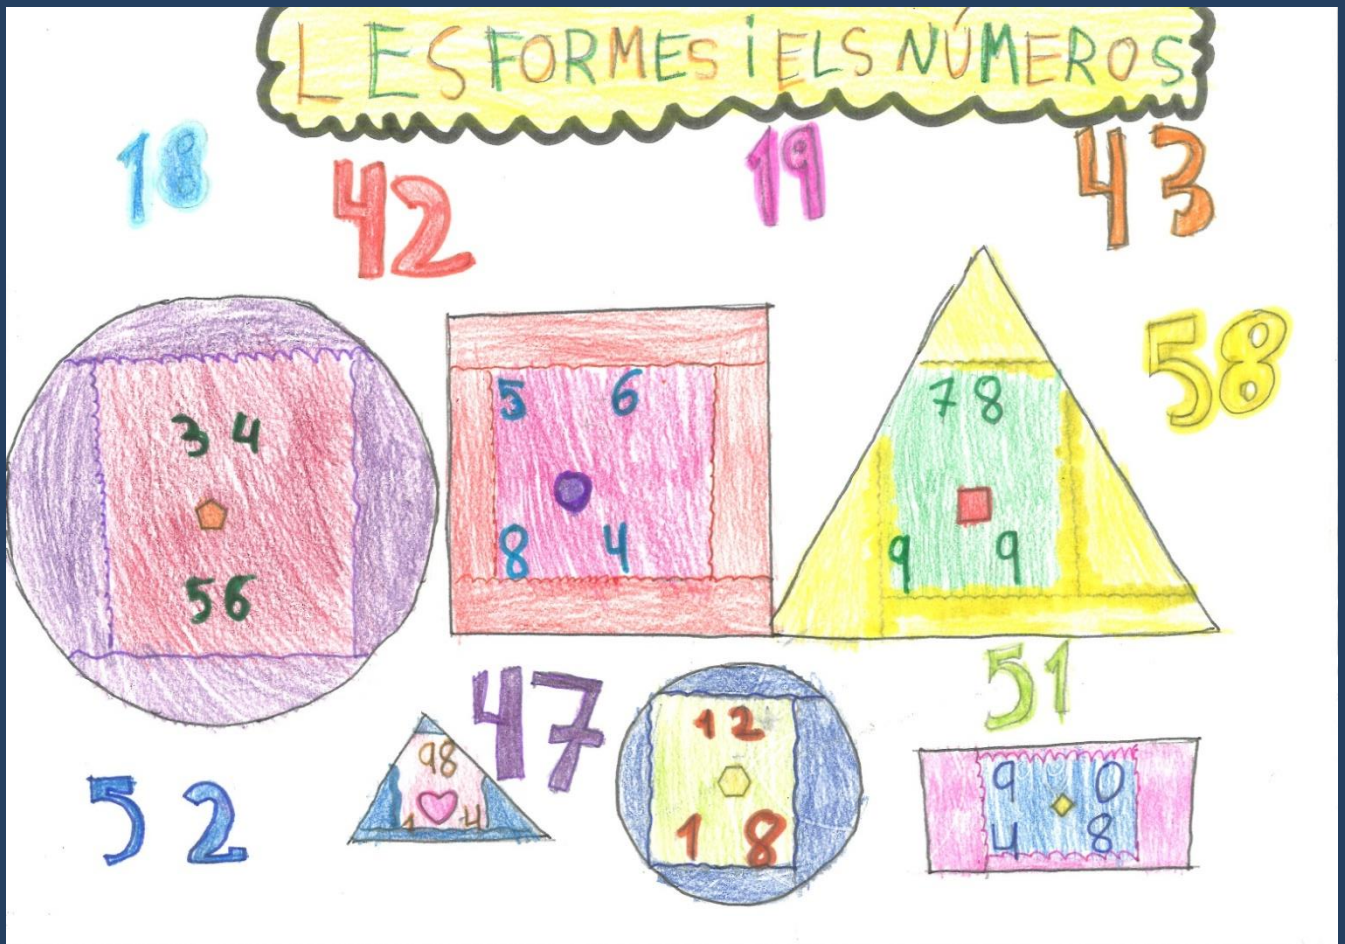 LES FORMES i ELS NÚMEROS
18
42
19
43
58
3 4
56
5 6
8 4
7 8
9 9
47
51
52
98
1 4
12
1 8
9 0
4 8